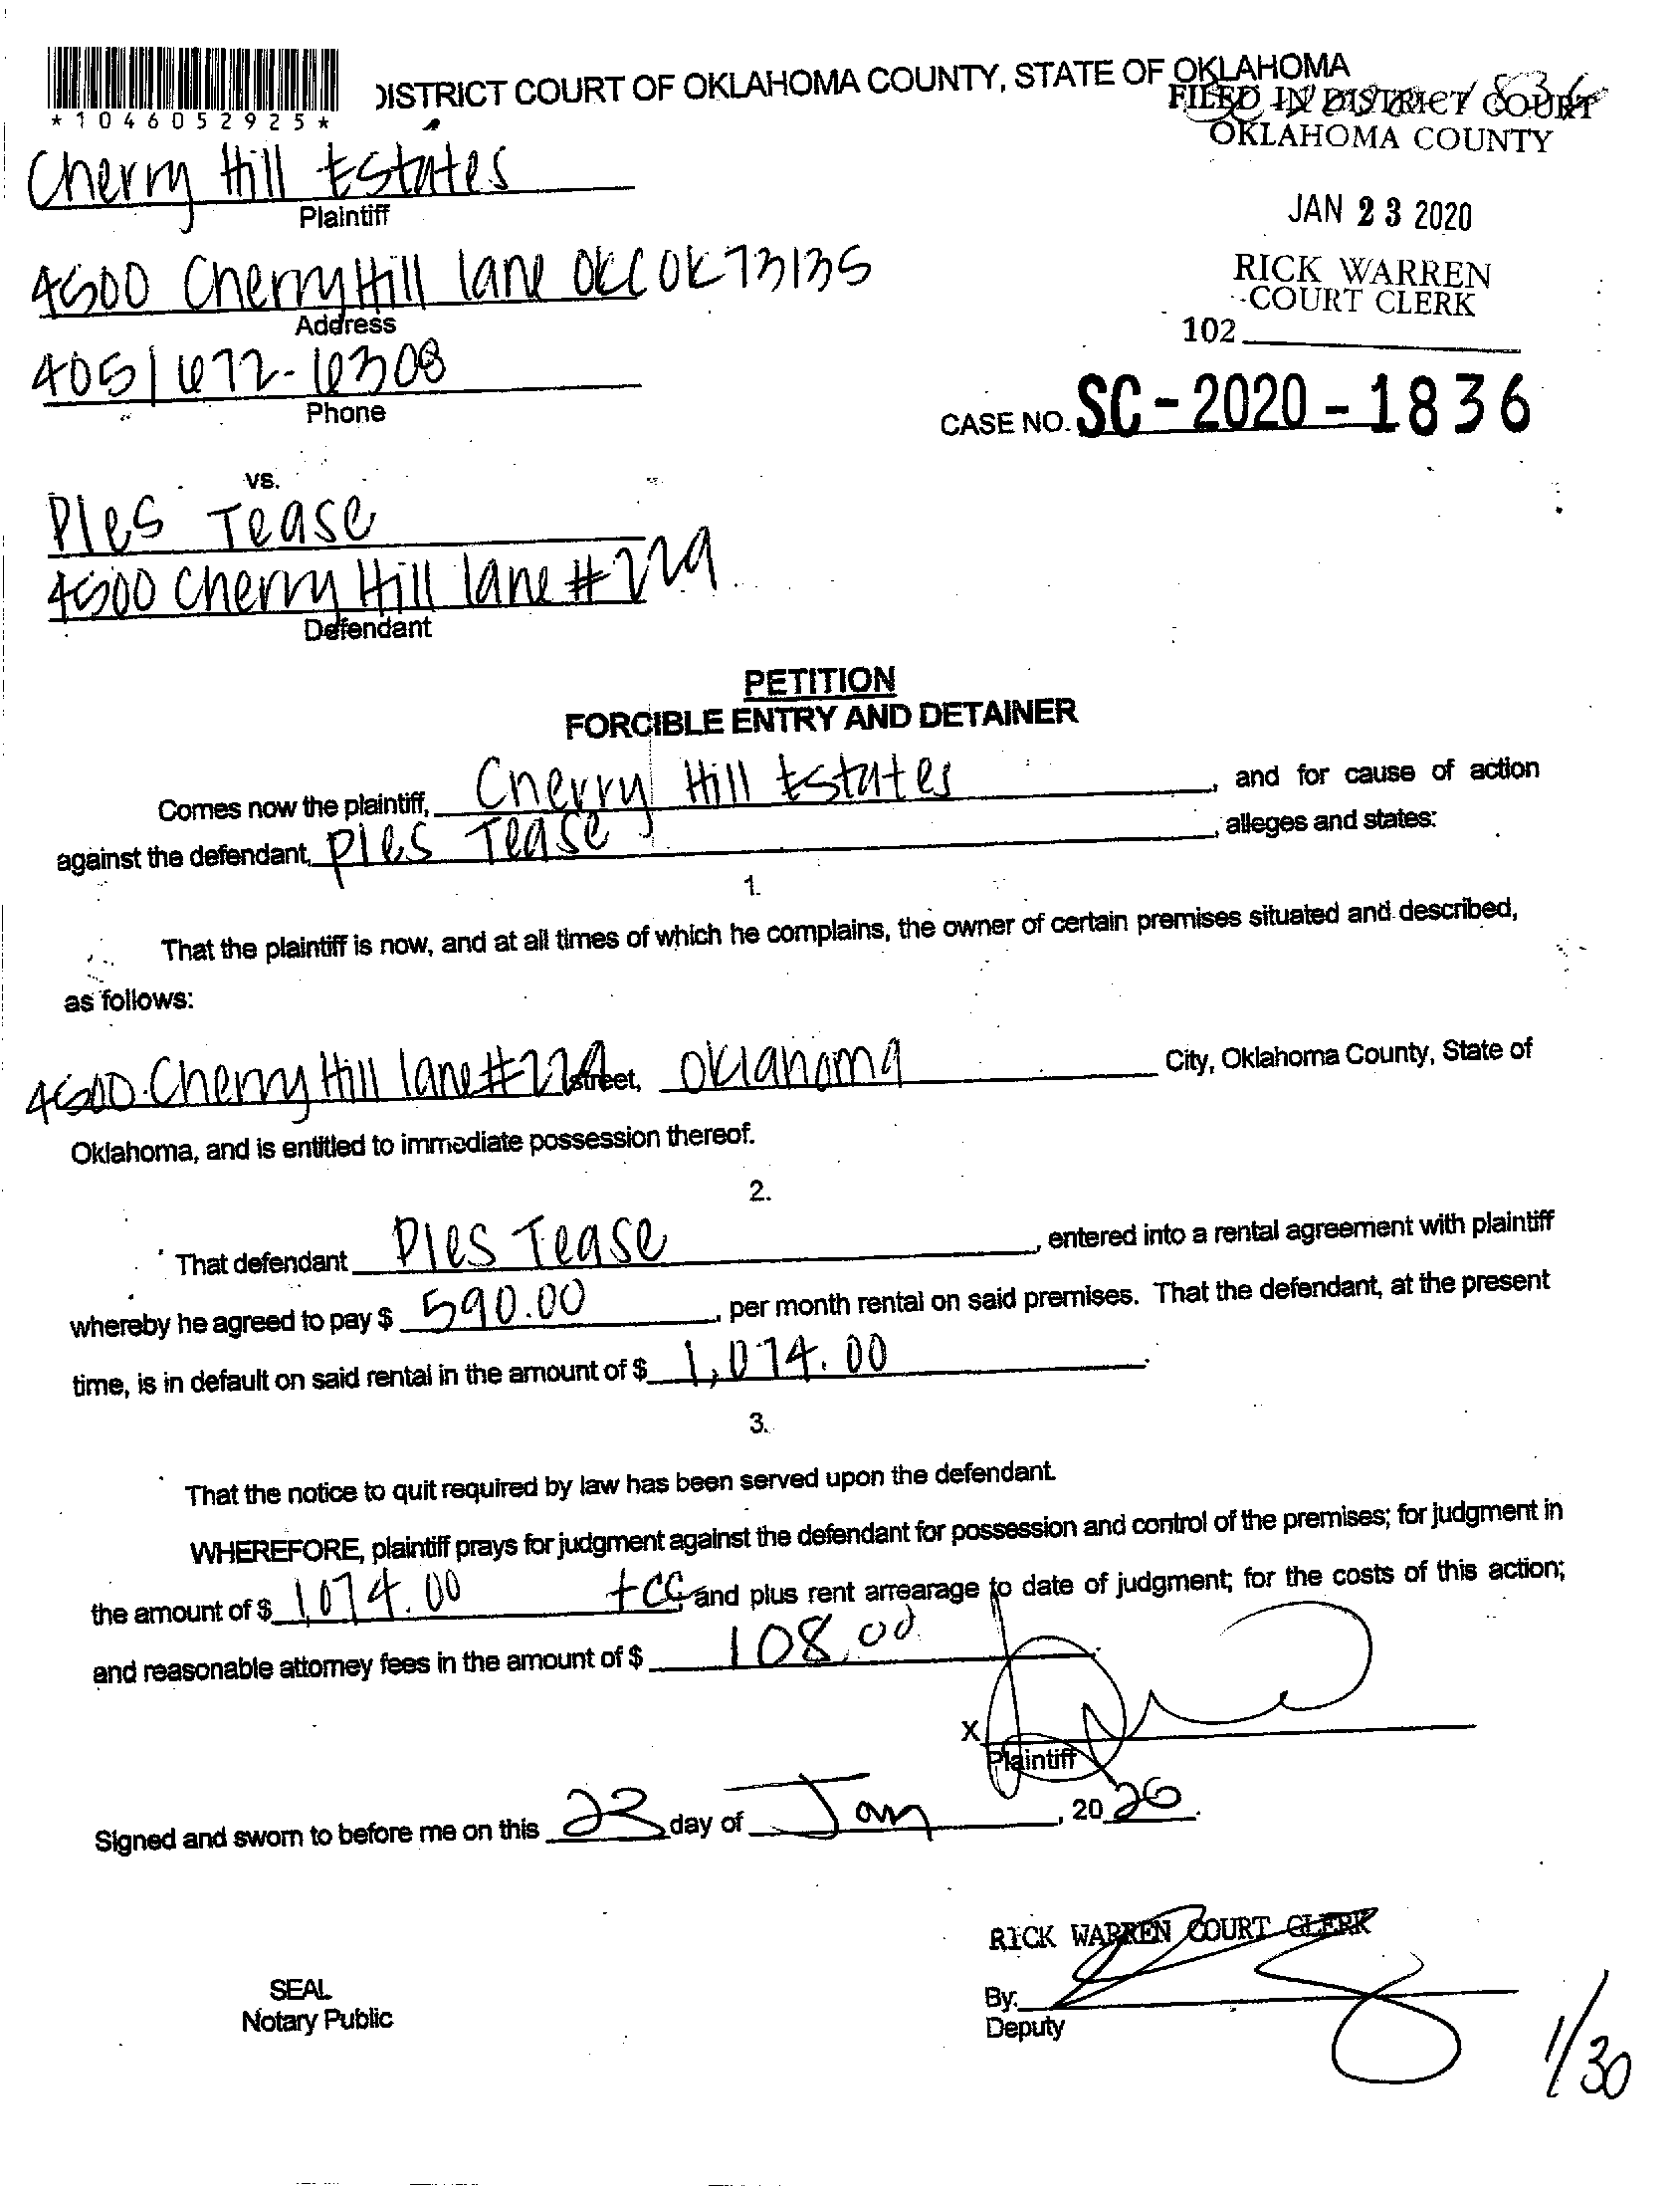 DISTRICT COURT OF OKLAHOMA COUNTY, STATE OF OKLAHOMA
*1046052925*
FILED IN DISTRICT COURT
OKLAHOMA COUNTY
JAN 23 2020
RICK WARREN
COURT CLERK
102
Cherry Hill Estates
Plaintiff
4500 Cherry Hill lane OKC OK 73135
Address
405/672-6308
Phone
CASE NO. SC-2020-1836
vs.
Ples Tease
4500 Cherry Hill lane #229
Defendant
PETITION
FORCIBLE ENTRY AND DETAINER
Comes now the plaintiff, Cherry Hill Estates, and for cause of action
against the defendant, Ples Tease, alleges and states:
1.
That the plaintiff is now, and at all times of which he complains, the owner of certain premises situated and described,
as follows:
4500 Cherry Hill lane #229 street, Oklahoma City, Oklahoma County, State of
Oklahoma, and is entitled to immediate possession thereof.
2.
That defendant Ples Tease, entered into a rental agreement with plaintiff
whereby he agreed to pay $ 590.00, per month rental on said premises. That the defendant, at the present
time, is in default on said rental in the amount of $ 1,074.00.
3.
That the notice to quit required by law has been served upon the defendant.
WHEREFORE, plaintiff prays for judgment against the defendant for possession and control of the premises; for judgment in
the amount of $ 1,074.00 +CC and plus rent arrearage to date of judgment; for the costs of this action;
and reasonable attorney fees in the amount of $ 108.00
X
Plaintiff
Signed and sworn to before me on this 23 day of Jan, 2020.
RICK WARREN COURT CLERK
SEAL
Notary Public
By:
Deputy
1/30